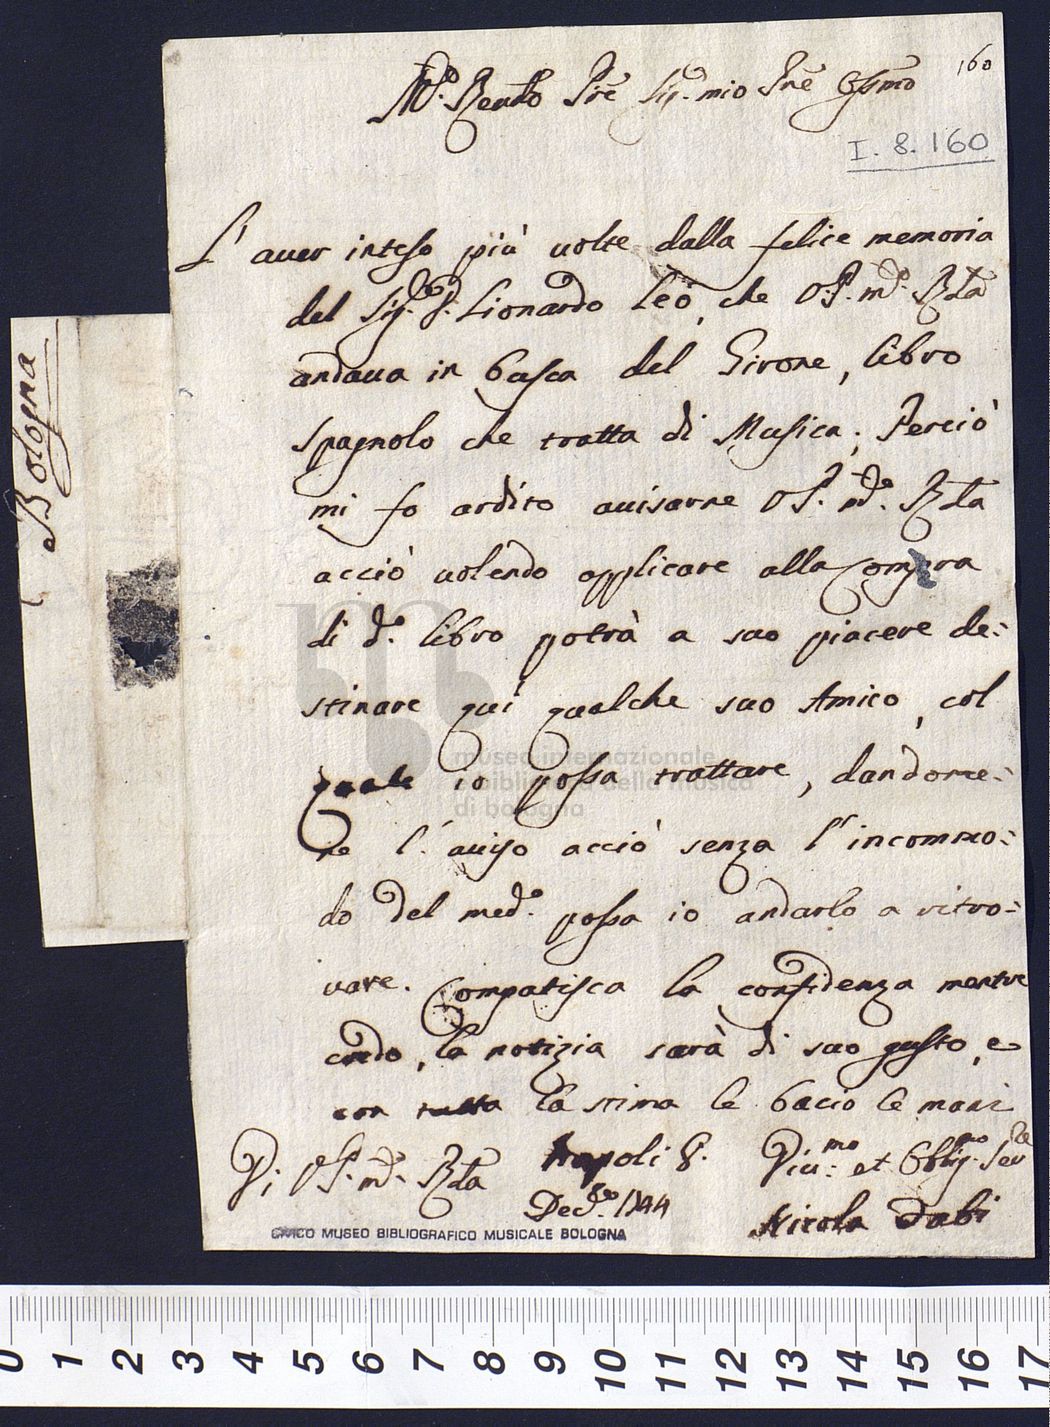 160
M.º Rendo Pre Sig.r mio Pne Ossmo
I. 8. 160
L'auer inteso più uolte dalla felice memoria
del Sig. D. Lionardo Leo, che V.P. m.º Rda
andaua in busca del Cirone, libro
spagnolo che tratta di Musica; Perciò
mi fo ardito auisarne V.P. m.º Rda
acciò uolendo applicare alla compra
di d.º libro potrà a suo piacere de:
stinare quí qualche suo Amico, col
quale io possa trattare, dandome:
ne l'auiso acciò senza l'incommo:
do del med.º possa io andarlo a ritro:
uare. Compatisca la confidenza mentre
credo, la notizia sarà di suo gusto, e
con tutta la stima le bacio le mani
Di V.P. m.º Rda
Napoli 8.
Dec.º 1744
Diu.mo et Obblig.mo Ser.re
Nicola Sabi
Bologna
museo internazionale
e biblioteca della musica
di bologna
CIVICO MUSEO BIBLIOGRAFICO MUSICALE BOLOGNA
0 1 2 3 4 5 6 7 8 9 10 11 12 13 14 15 16 17